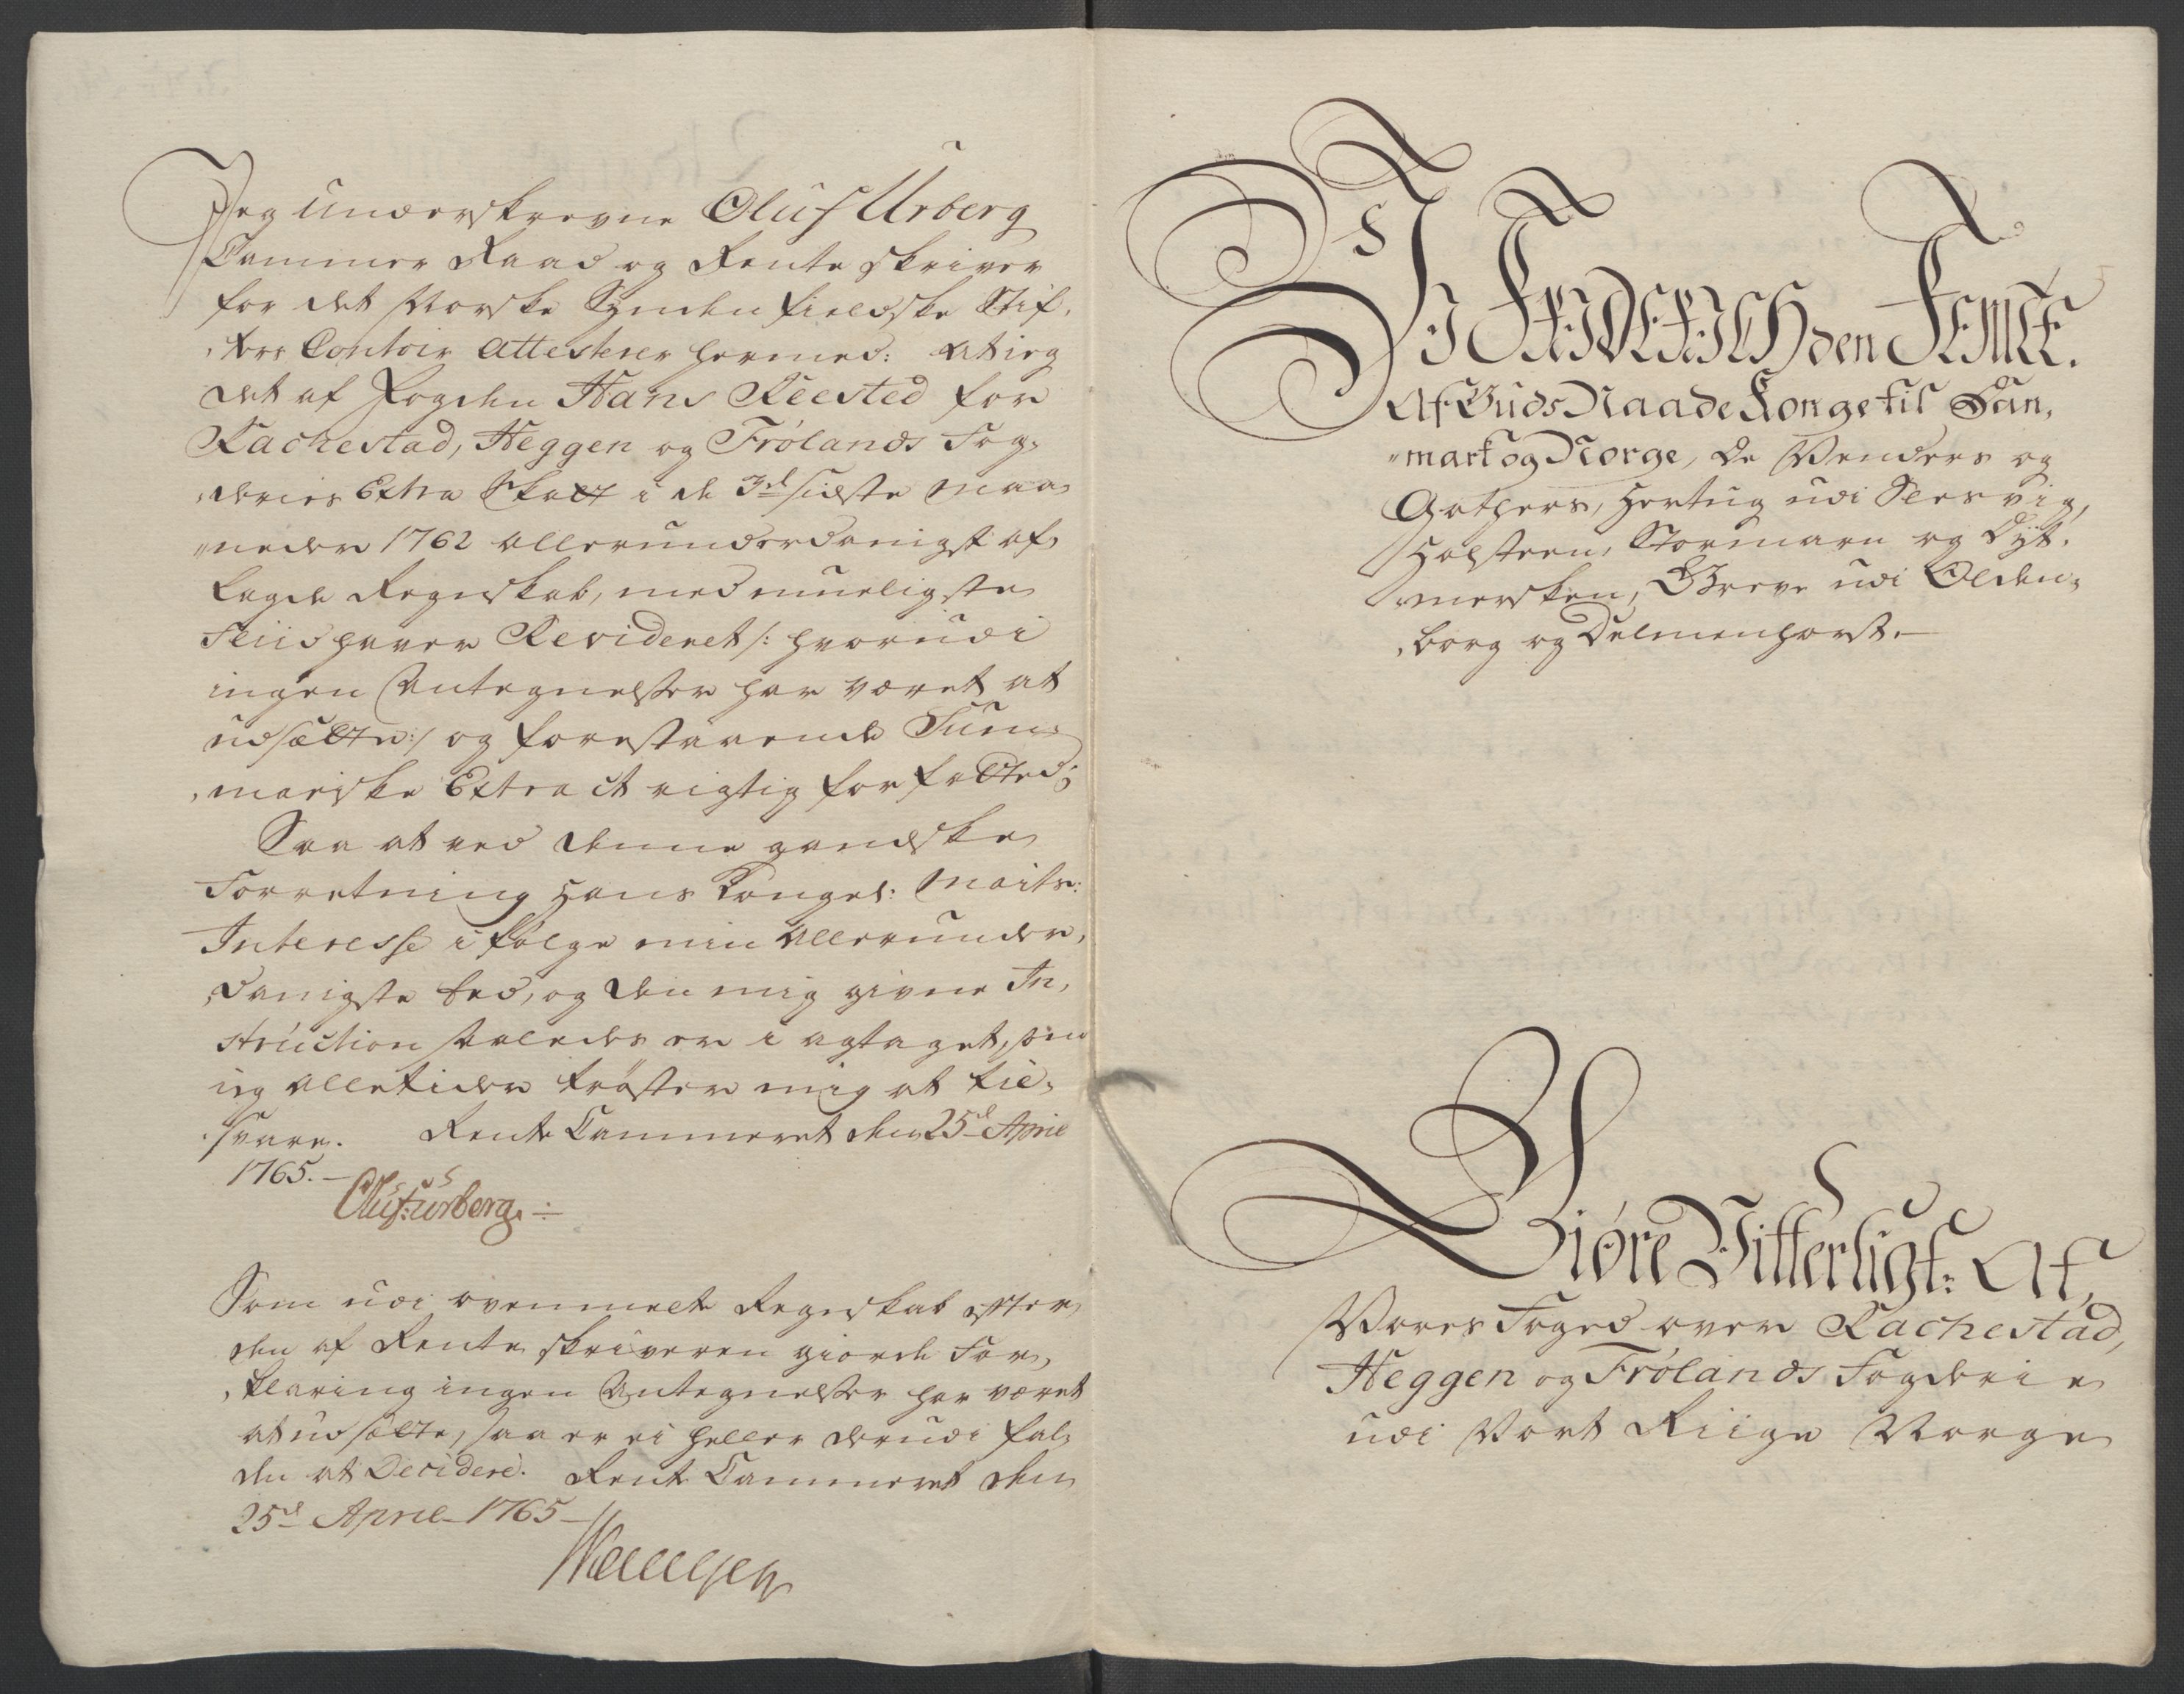 Jeg underskrevne Oluf Urberg
Cammer Raad og Renteskriver
for det Norske Syndenfieldske Stif,
,ters Contoir Attesterer hermed: At ieg
det af Fogden Hans Reested for
Rachestad, Heggen og Frölands Fog,
,deries Extra Skatt i de 3de sidste Maa
"neder 1762 allerunderdanigst af,
lagde Regnskab, med mueligste
Fliid haver Revideret /: hvorudi
ingen Antegnelser har været at
udsætte :/ og forestaaende Sum,
,mariske Extract rigtig forfatted;
Saa at ved denne gandske
Forretning Hans Kongel: Maits:
Interesse i følge min Allerunder,
,danigste Eed, og den mig givne In,
struction saaledes er i agtaget, som
ieg alletider trøster mig at til,
,svare. Rente Cammeret den 25de April
1765.—
Oluf Urberg.
Som udi ovenmelte Regnskab efter
den af Renteskriveren giorde For,
,klaring ingen Antegnelser har været
at udsætte, saa er ei heller derudi fal,
den at Decidere. Rente Cammeret den
25de April 1765—
Vi FRIDERICH den FEMTE.
Af Guds Naade Konge til Dan,
"mark og Norge, de Venders og
Gothers, Hertug udi Slesvig,
Holsteen, Stormarn og Dyt,
mersken, Greve udi Olden,
,borg og Delmenhorst.—
Giöre Vitterligt: At
Vores Foged over Rachestad,
Heggen og Frölands Fogderie
udi Vort Riige Norge